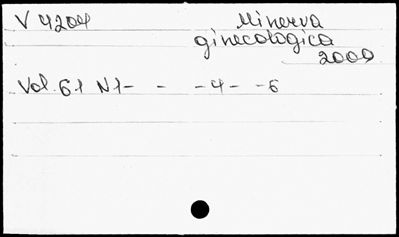 V 4204
Minerva
ginecologica
2009
Vol. 61 N1- - -4- -6